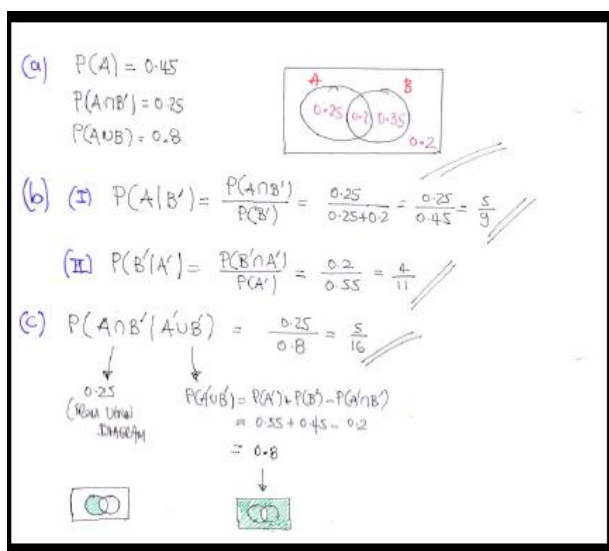 (a) P(A) = 0.45
P(A∩B') = 0.25
P(A∪B) = 0.8
A B
0.25 0.2 0.35
0.2
(b) (I) P(A|B') = P(A∩B')/P(B') = 0.25/0.25+0.2 = 0.25/0.45 = 5/9
(II) P(B'|A') = P(B'∩A')/P(A') = 0.2/0.55 = 4/11
(c) P(A∩B'|A'∪B') = 0.25/0.8 = 5/16
0.25
(FROM VENN
DIAGRAM
P(A'∪B') = P(A') + P(B') - P(A'∩B')
= 0.55 + 0.45 - 0.2
= 0.8